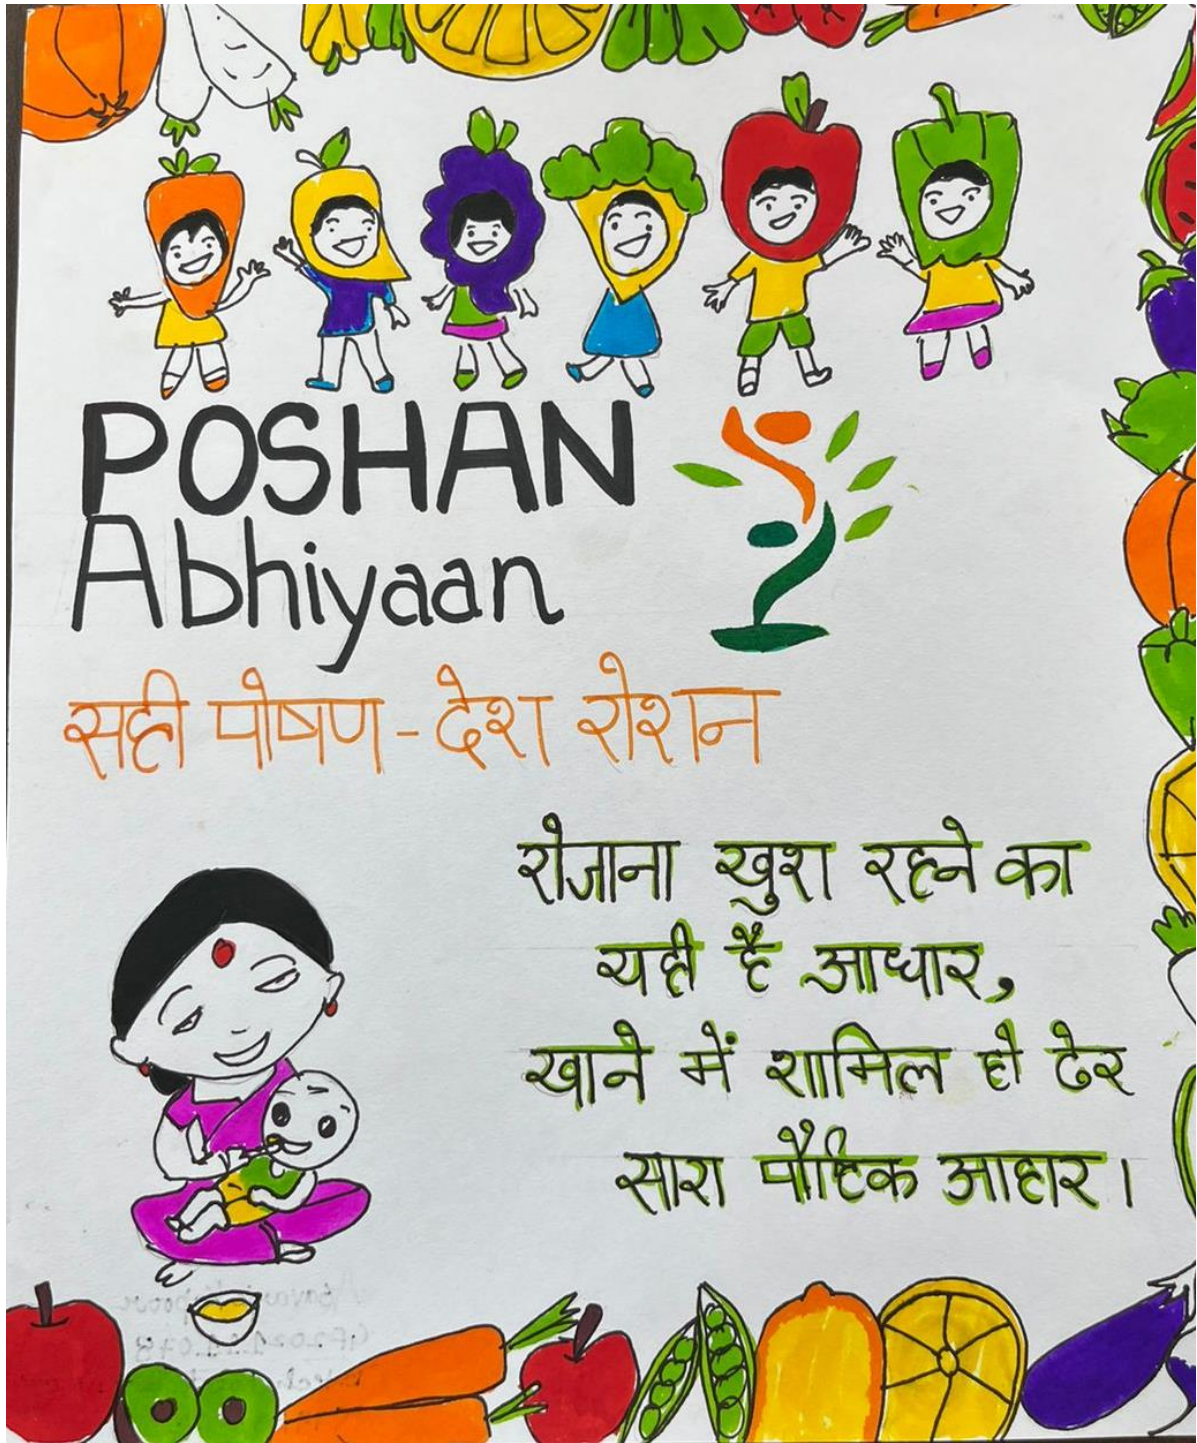 POSHAN
Abhiyaan
सही पोषण - देश रोशन
रोजाना खुश रहने का
यही है आधार,
खाने में शामिल हो ढेर
सारा पौष्टिक आहार।